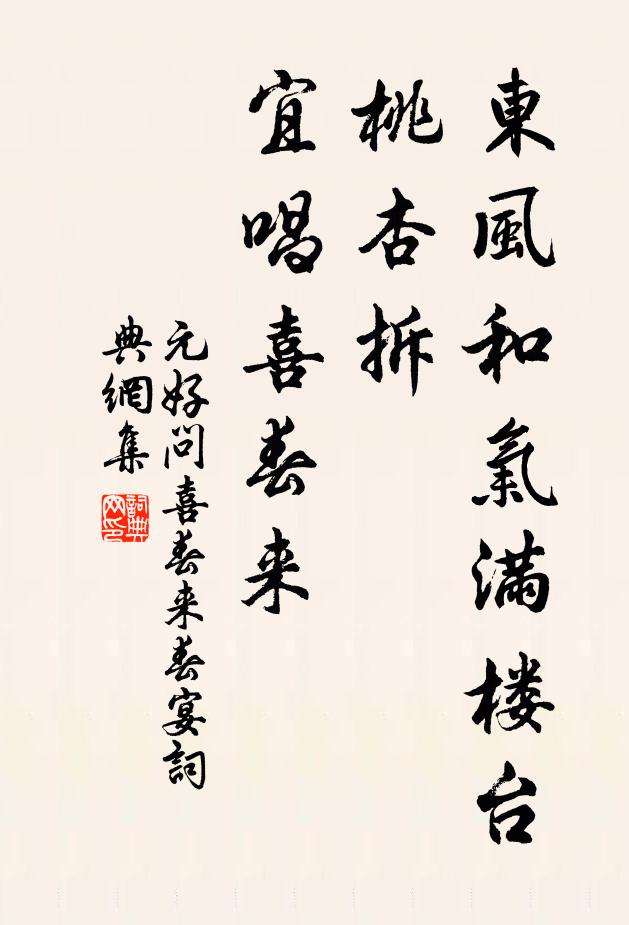 東風和氣滿楼台
桃杏拆
宜唱喜春来
元好问喜春来春宴詞
典網集
詞典
网印